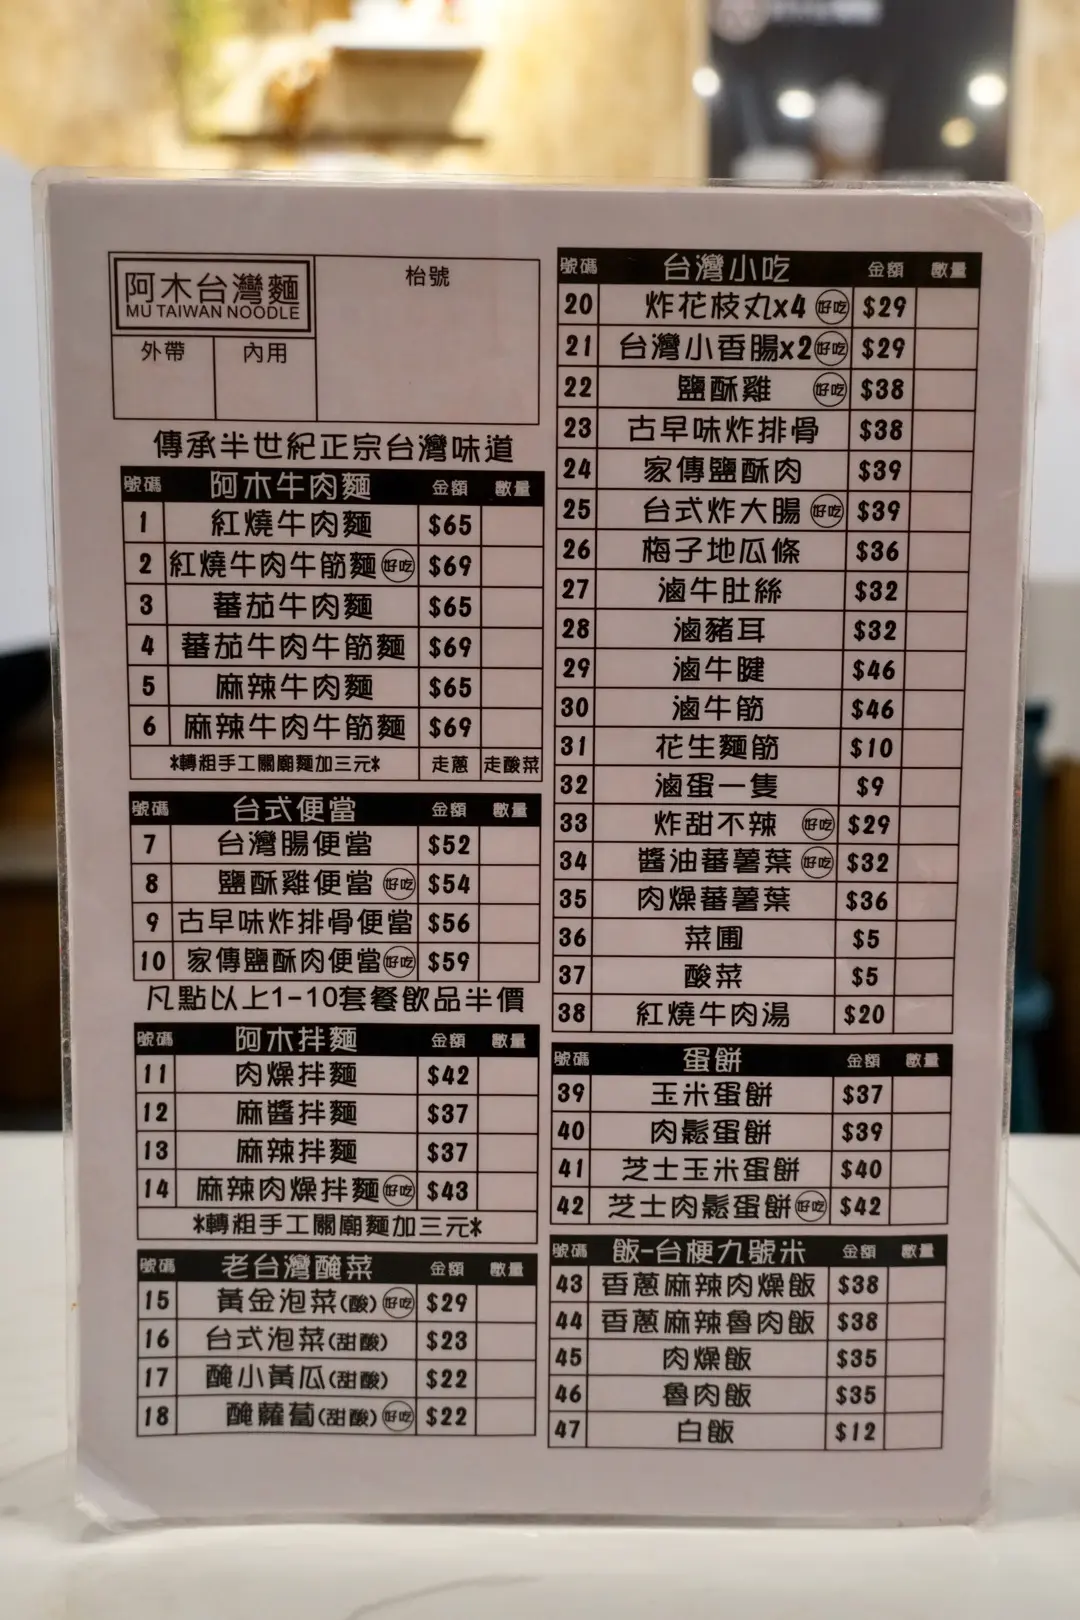 阿木台灣麵
MU TAIWAN NOODLE
枱號
外帶 內用
傳承半世紀正宗台灣味道
號碼 阿木牛肉麵 金額 數量
1 紅燒牛肉麵 $65
2 紅燒牛肉牛筋麵 好吃 $69
3 蕃茄牛肉麵 $65
4 蕃茄牛肉牛筋麵 $69
5 麻辣牛肉麵 $65
6 麻辣牛肉牛筋麵 $69
*轉粗手工關廟麵加三元* 走蔥 走酸菜
號碼 台式便當 金額 數量
7 台灣腸便當 $52
8 鹽酥雞便當 好吃 $54
9 古早味炸排骨便當 $56
10 家傳鹽酥肉便當 好吃 $59
凡點以上1-10套餐飲品半價
號碼 阿木拌麵 金額 數量
11 肉燥拌麵 $42
12 麻醬拌麵 $37
13 麻辣拌麵 $37
14 麻辣肉燥拌麵 好吃 $43
*轉粗手工關廟麵加三元*
號碼 老台灣醃菜 金額 數量
15 黃金泡菜(酸) 好吃 $29
16 台式泡菜(甜酸) $23
17 醃小黃瓜(甜酸) $22
18 醃蘿蔔(甜酸) 好吃 $22
號碼 台灣小吃 金額 數量
20 炸花枝丸x4 好吃 $29
21 台灣小香腸x2 好吃 $29
22 鹽酥雞 好吃 $38
23 古早味炸排骨 $38
24 家傳鹽酥肉 $39
25 台式炸大腸 好吃 $39
26 梅子地瓜條 $36
27 滷牛肚絲 $32
28 滷豬耳 $32
29 滷牛腱 $46
30 滷牛筋 $46
31 花生麵筋 $10
32 滷蛋一隻 $9
33 炸甜不辣 好吃 $29
34 醬油蕃薯葉 好吃 $32
35 肉燥蕃薯葉 $36
36 菜圃 $5
37 酸菜 $5
38 紅燒牛肉湯 $20
號碼 蛋餅 金額 數量
39 玉米蛋餅 $37
40 肉鬆蛋餅 $39
41 芝士玉米蛋餅 $40
42 芝士肉鬆蛋餅 好吃 $42
號碼 飯-台梗九號米 金額 數量
43 香蔥麻辣肉燥飯 $38
44 香蔥麻辣魯肉飯 $38
45 肉燥飯 $35
46 魯肉飯 $35
47 白飯 $12